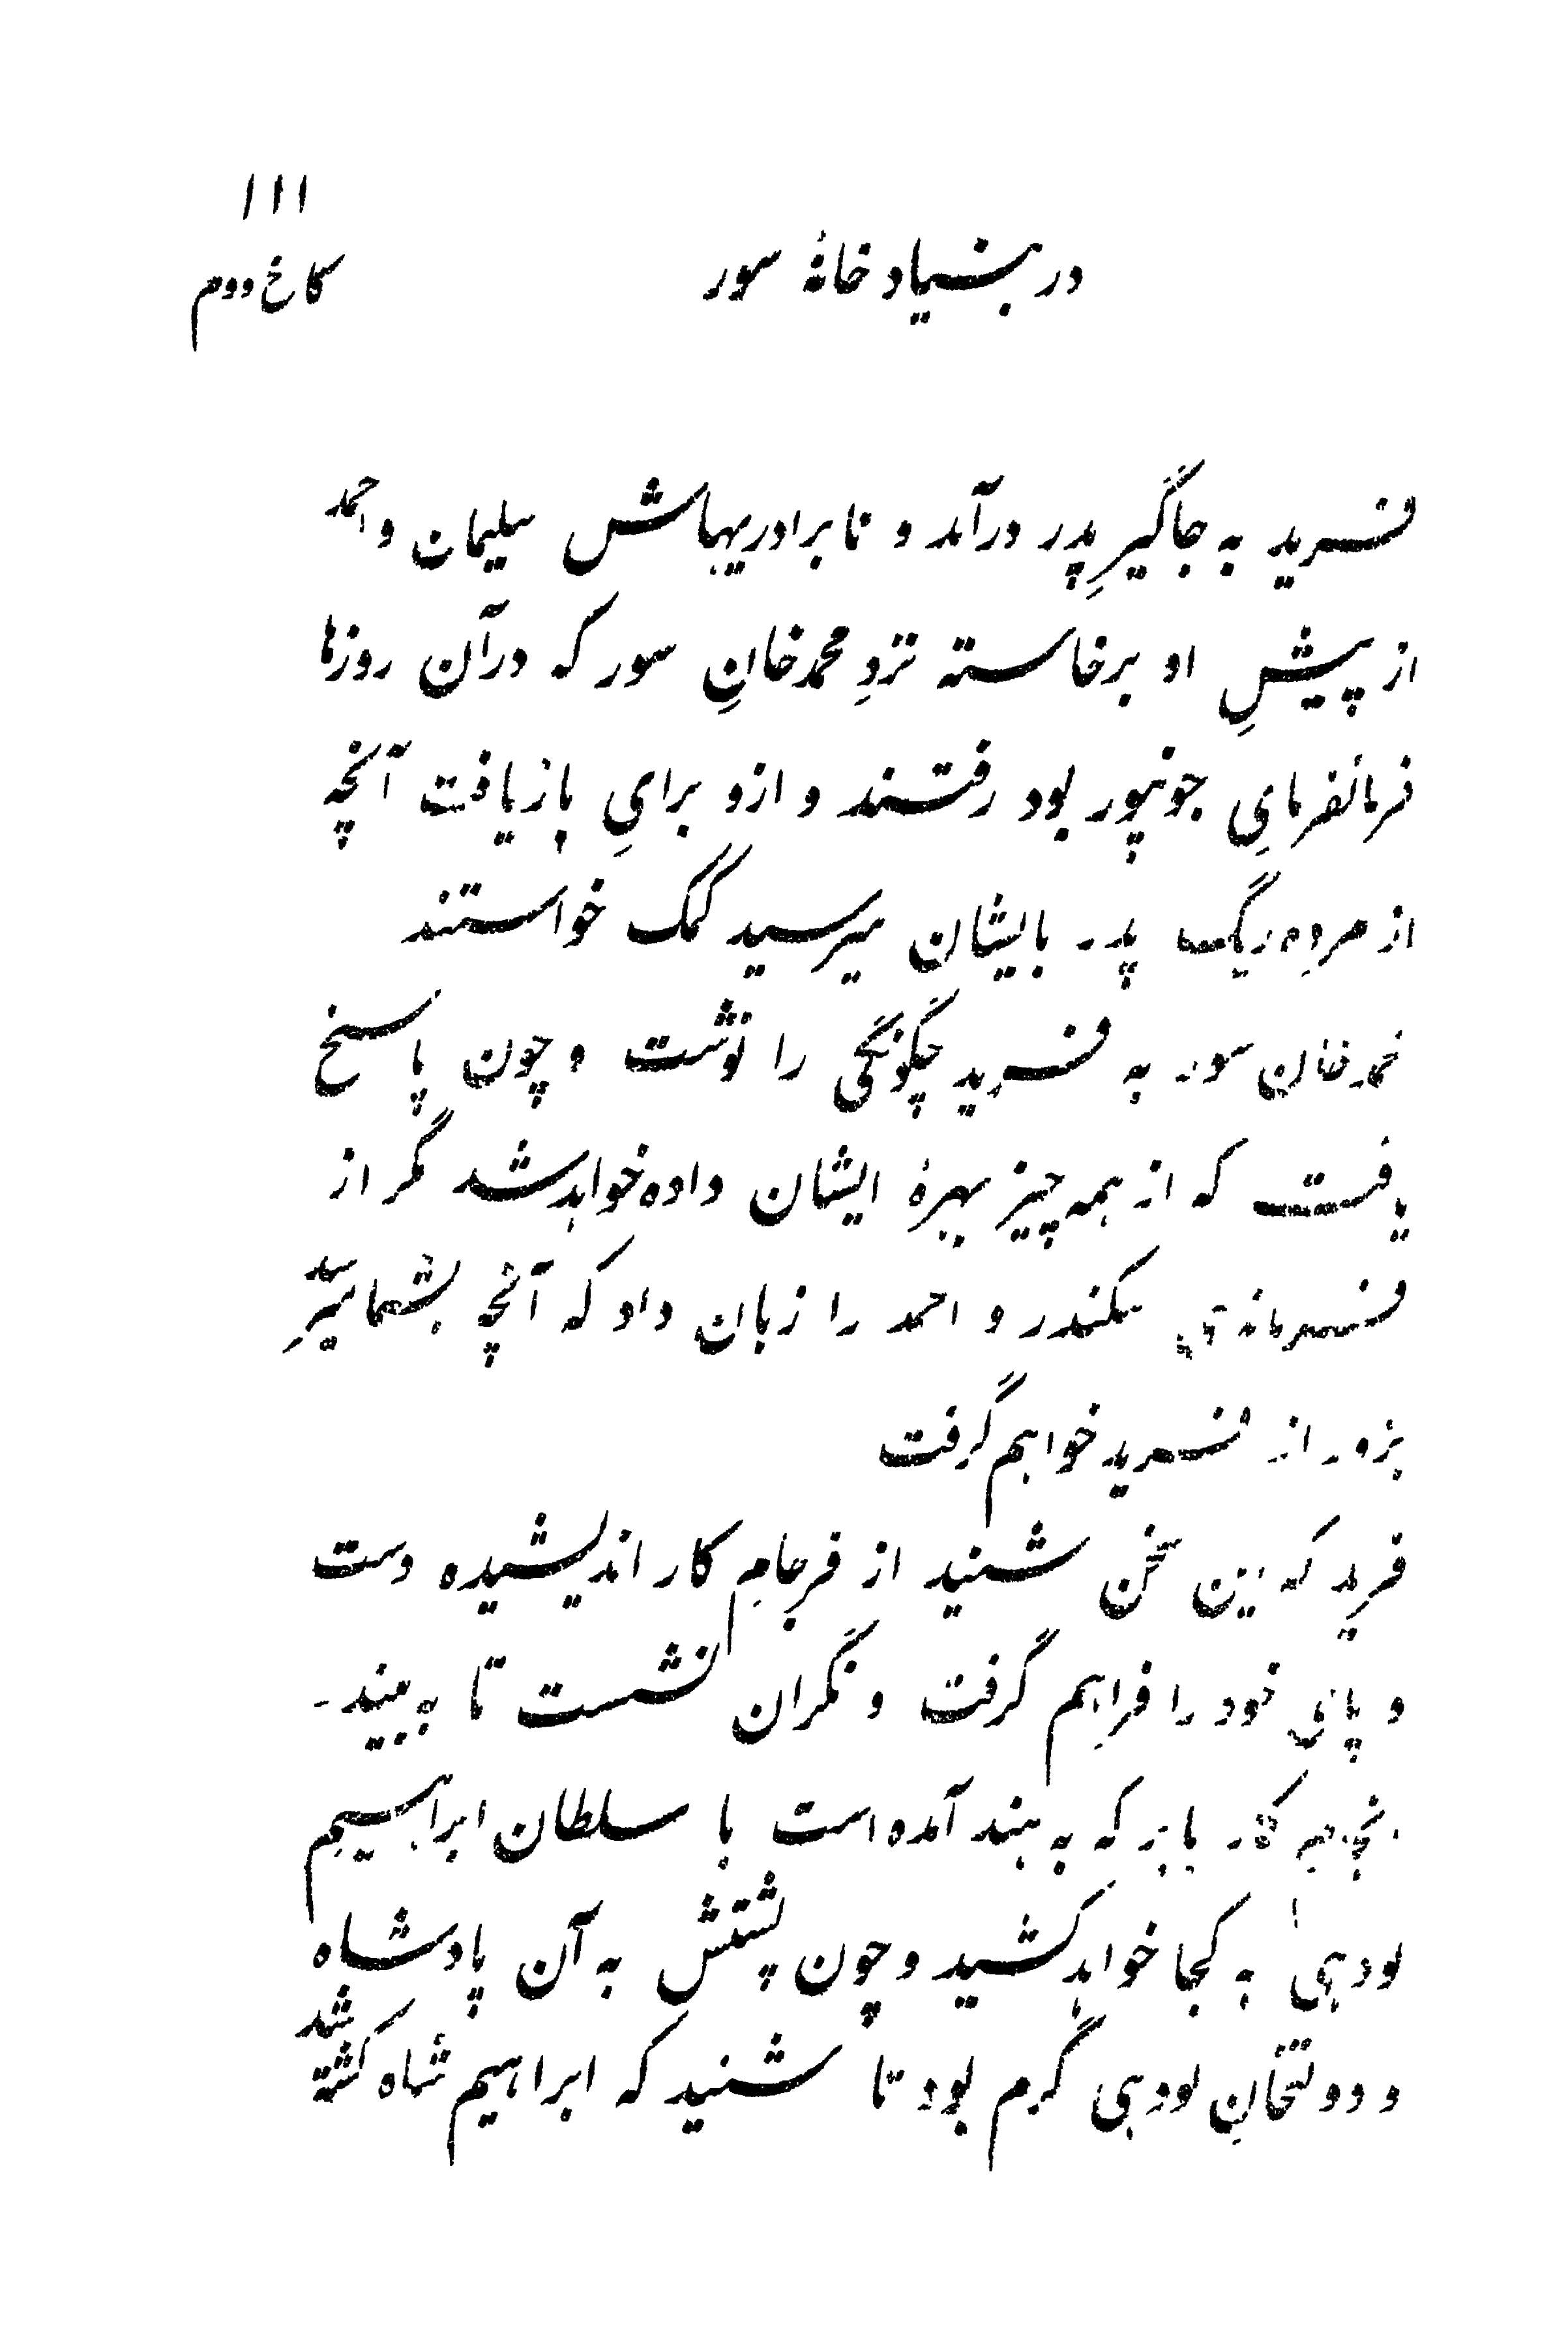 ۱۱۱
در بنیاد خانهٔ سور
کاخ دوم
فرید به جاگیرِ پدر درآمد و نابرادریهاش سلیمان و احمد
از پیشِ او برخاسته نزدِ محمد خانِ سور که درآن روزها
فرمانفرمایِ جونپور بود رفتند و ازو برایِ بازیافت آنچه
از مرده ریگ پدر بایشان میرسید کمک خواستند
محمد خان سور به فرید چگونگی را نوشت و چون پاسخ
یافت که از همه چیز بهرهٔ ایشان داده خواهد شد مگر از
فرماندهی سکندر و احمد را زبان داد که آنچه بشما میرسد
بزور از فرید خواهم گرفت
فرید که این سخن شنید از فرجامِ کار اندیشیده دست
و پای خود را فراهم گرفت و نگران نشست تا به بیند۔
انجام کار بابر که به هند آمده است با سلطان ابراهیم
لودهی به کجا خواهد کشید و چون پشتش به آن پادشاه
و دولتخانِ لودهی گرم بود تا شنید که ابراهیم شاه کشته شد